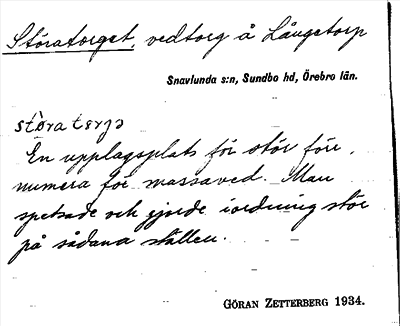 Störatorget, vedtorg å Långetorp
Snavlunda s:n, Sundbo hd, Örebro län.
störa tɛrjə
En upplagsplats för stör förr,
numera för massaved. Man
spetsade och gjorde iordning stör
på sådana ställen.
GÖRAN ZETTERBERG 1934.